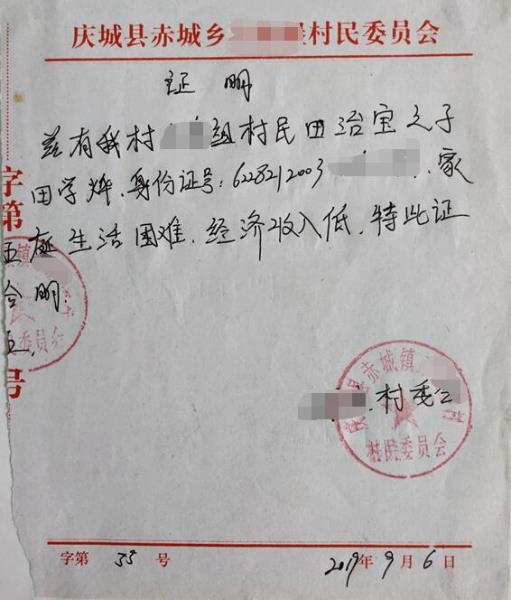 庆城县赤城乡 村民委员会
证明
兹有我村 组村民田治宝之子
田学烨、身份证号:6228212003 家
庭生活困难、经济收入低、特此证
明.
字第
伍
合
五
号
赤城镇
委员会
庆 县赤城镇 村
村民委员会
村委会
字第 33 号 2019年9月6日